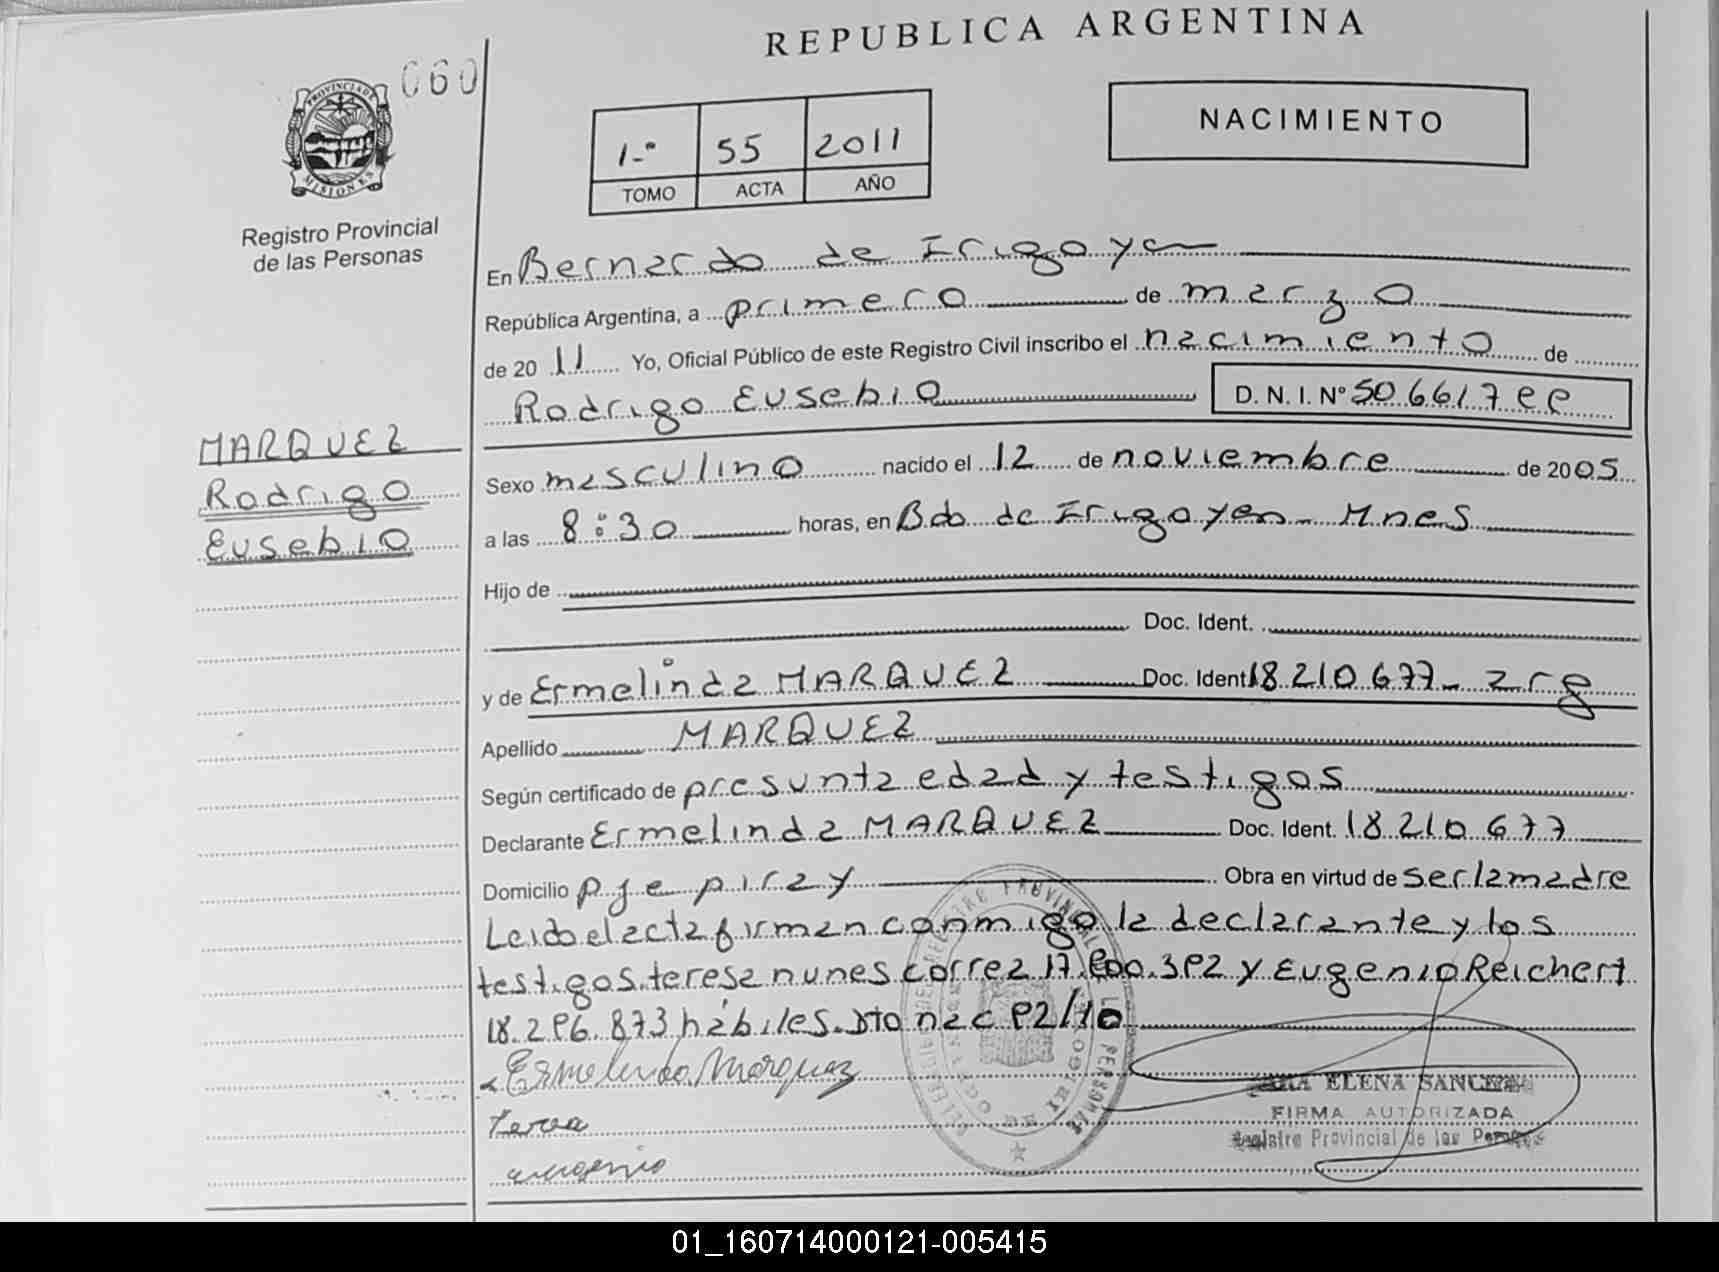 REPUBLICA ARGENTINA
060
PROVINCIA DE
MISIONES
Registro Provincial
de las Personas
1-º 55 2011
TOMO ACTA AÑO
NACIMIENTO
En Bernardo de Irigoyen
República Argentina, a primero de marzo
de 20 11 Yo, Oficial Público de este Registro Civil inscribo el nacimiento de
Rodrigo Eusebio D. N. I. Nº 50661788
MARQUEZ
Rodrigo
Eusebio
Sexo masculino nacido el 12 de noviembre de 2005
a las 8:30 horas, en Bdo de Irigoyen - Mnes
Hijo de
Doc. Ident.
y de Ermelinda MARQUEZ Doc. Ident 18.210.677- arg
Apellido MARQUEZ
Según certificado de presunta edad y testigos
Declarante Ermelinda MARQUEZ Doc. Ident. 18.210.677
Domicilio pje piray Obra en virtud de ser la madre
Leido el acta firman conmigo la declarante y los
testigos teresa nunes correa 17.800.382 y Eugenio Reichert
18.286.873 hábiles. Dto nac 82/10
Ermelinda Marquez
Teresa
eugenio
ELENA
FIRMA AUTORIZADA
Registro Provincial de las Personas
01_160714000121-005415